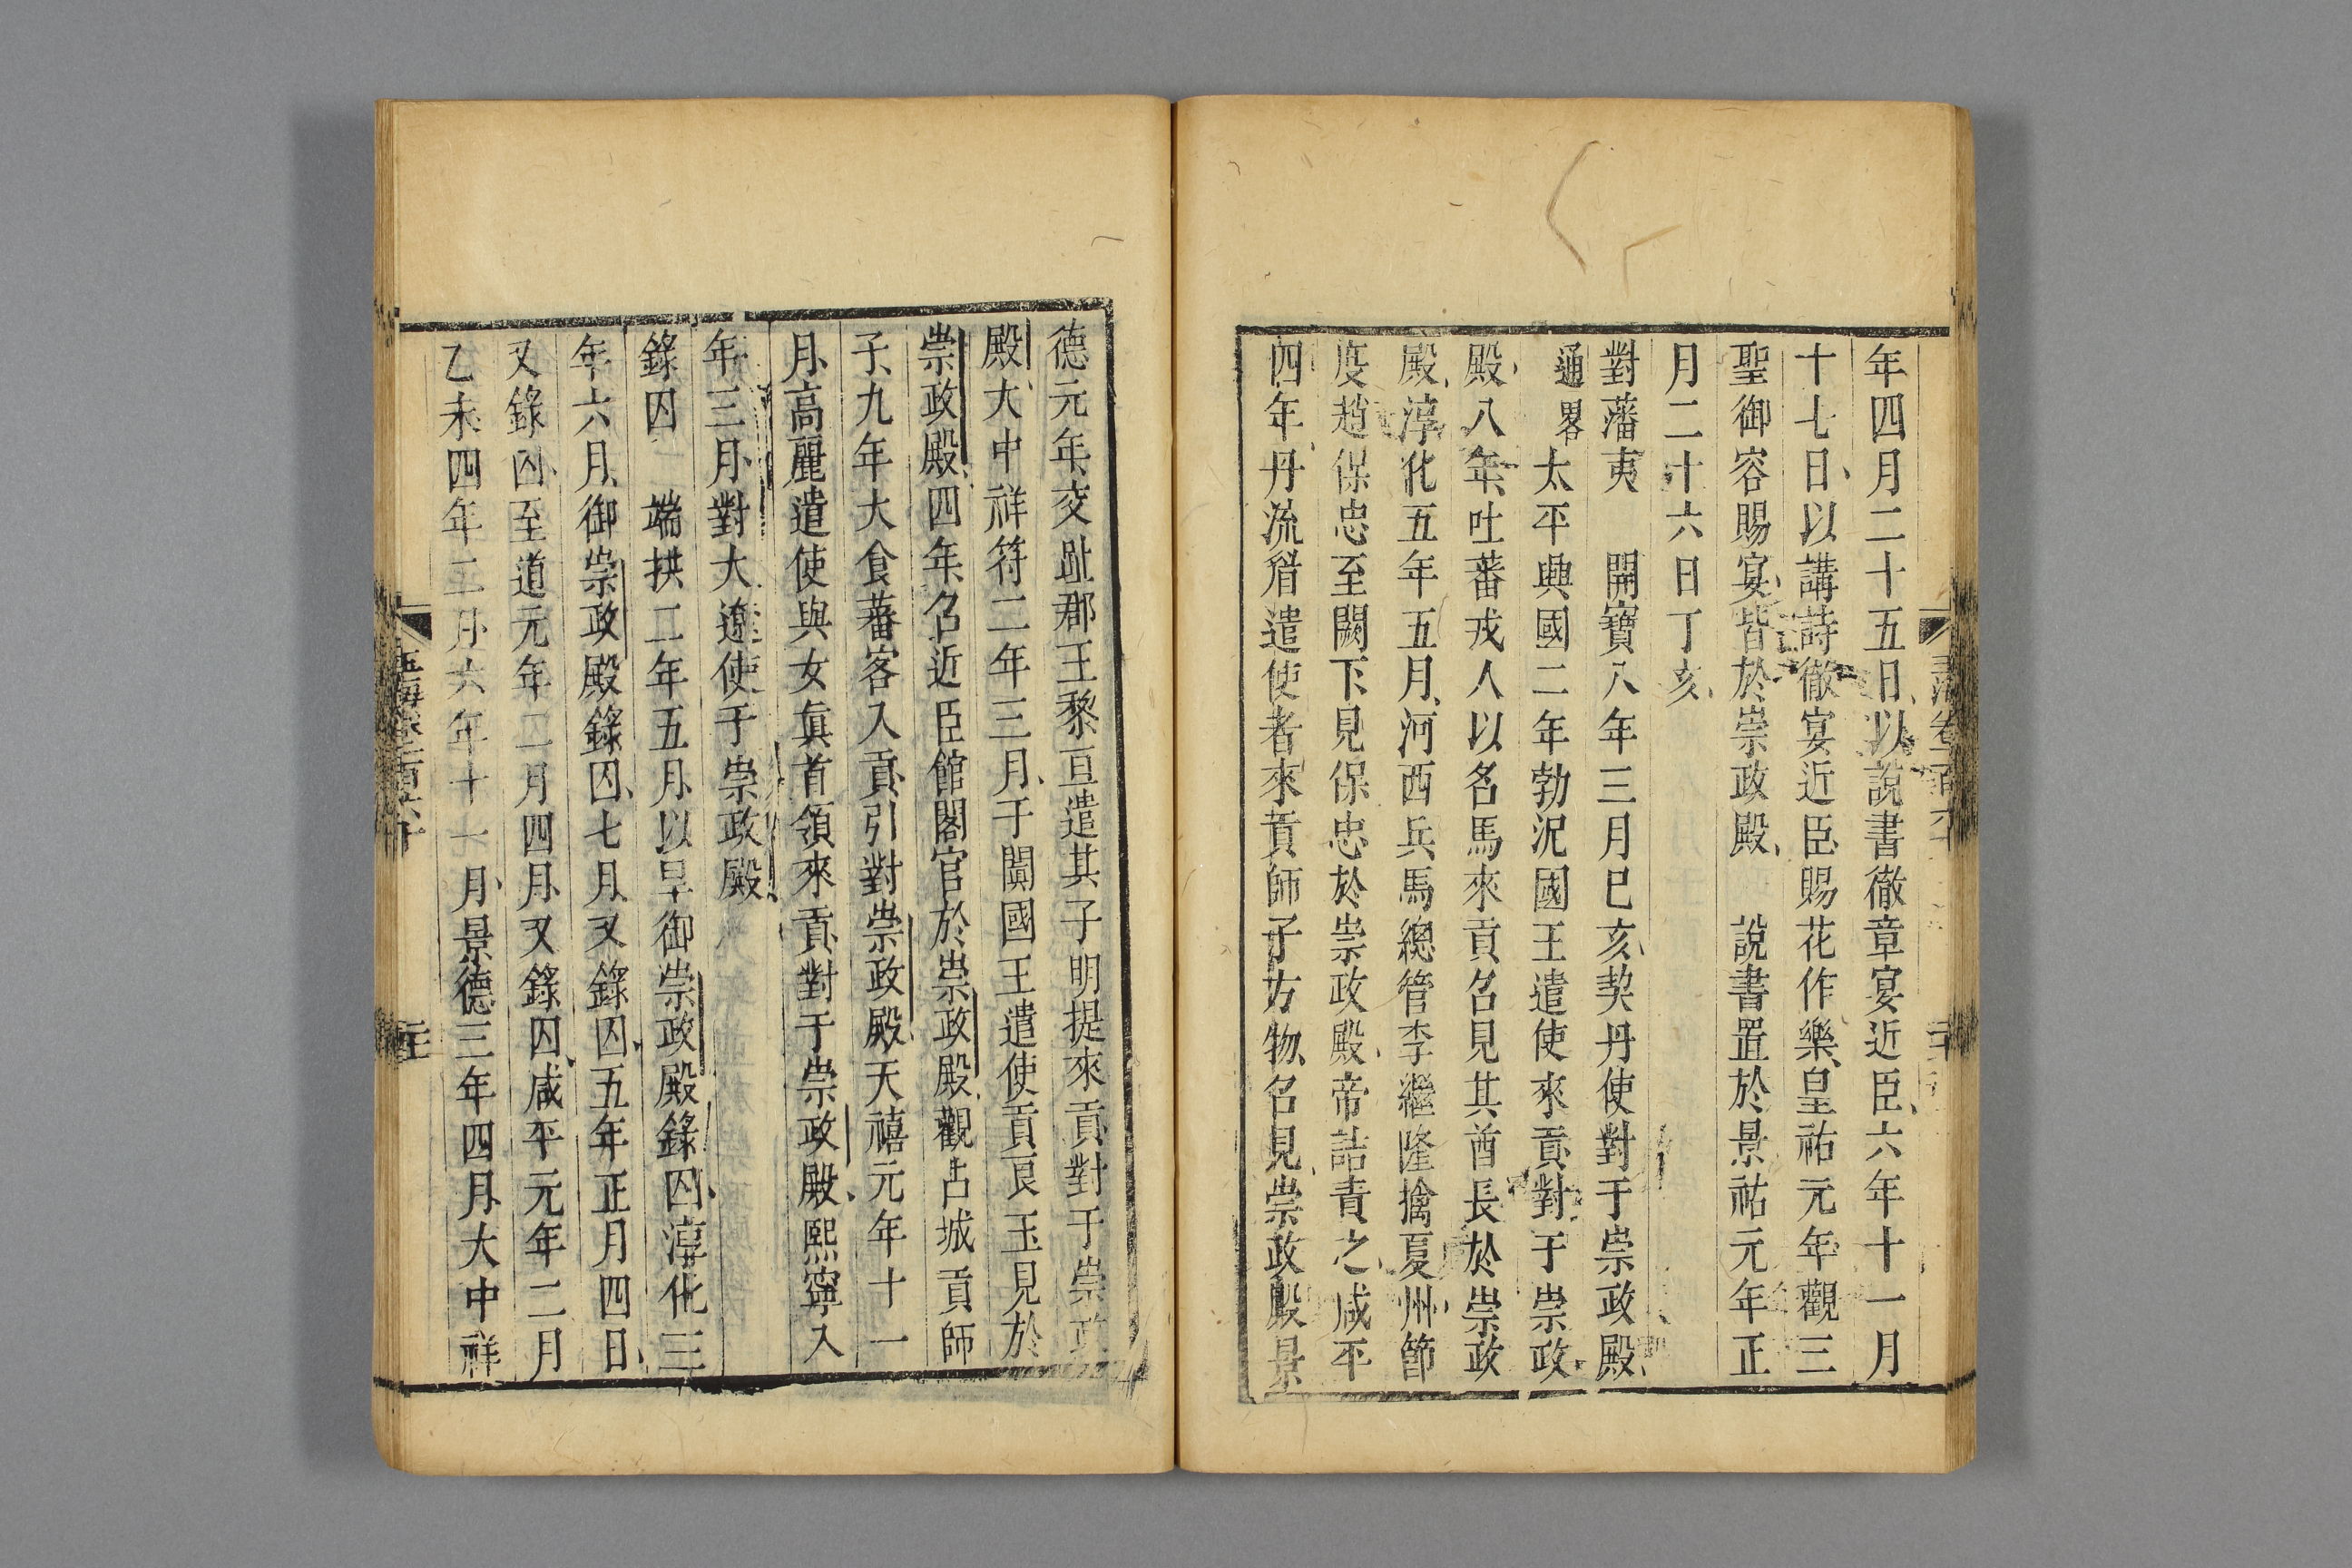 年四月二十五日以說書徹章宴近臣六年十一月
十七日以講詩徹宴近臣賜花作樂皇祐元年觀三
聖御容賜宴皆於崇政殿 說書置於景祐元年正
月二十六日丁亥
對藩夷 開寶八年三月巳亥契丹使對于崇政殿
通畧太平興國二年勃泥國王遣使來貢對于崇政
殿八年吐蕃戎人以名馬來貢召見其酋長於崇政
殿淳化五年五月河西兵馬緫管李繼隆擒夏州節
度趙保忠至闕下見保忠於崇政殿帝詰責之咸平
四年丹流眉遣使者來貢師子方物召見崇政殿景
德元年交趾郡王黎亘遣其子明提來貢對于崇政
殿大中祥符二年三月于闐國王遣使貢良玉見於
崇政殿四年召近臣館閣官於崇政殿觀占城貢師
子九年大食蕃客入貢引對崇政殿天禧元年十一
月高麗遣使與女真首領來貢對于崇政殿熙寧八
年三月對大遼使于崇政殿
錄囚 端拱二年五月以旱御崇政殿錄囚淳化三
年六月御崇政殿錄囚七月又錄囚五年正月四日
又錄囚至道元年二月四月又錄囚咸平元年二月
乙未四年二月六年十一月景德三年四月大中祥